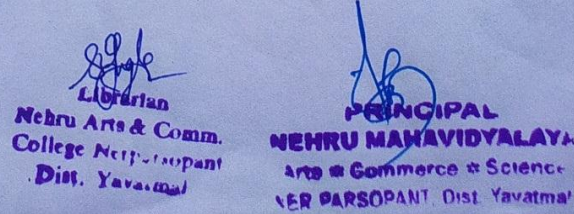 Librarian
Nehru Arts & Comm.
College
Dist. Yavatmal
PRINCIPAL
NEHRU MAHAVIDYALAYA
Arts * Commerce * Science
NER PARSOPANT. Dist. Yavatmal